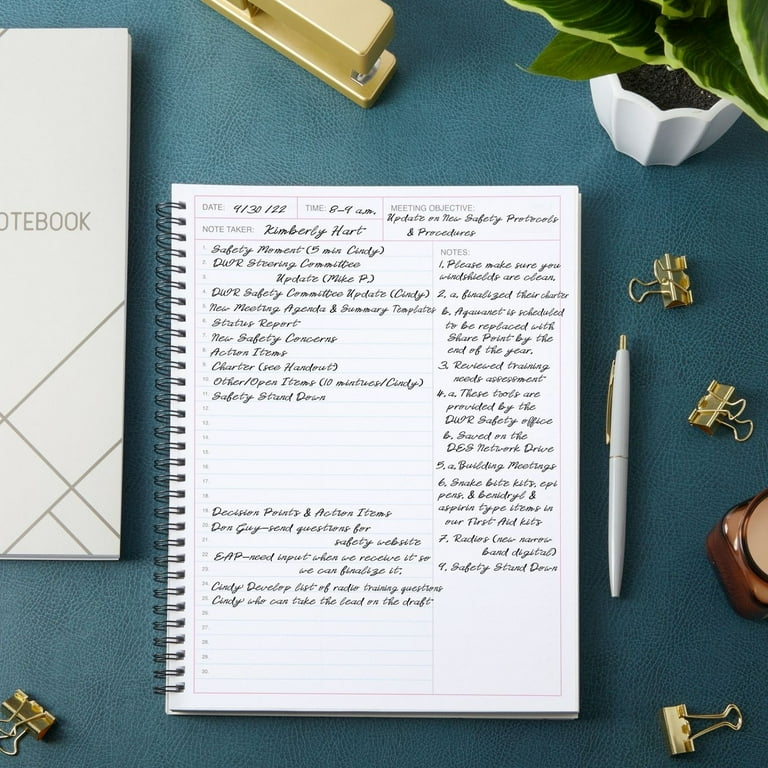 OTEBOOK
DATE: 9/30/22 TIME: 8-9 a.m. MEETING OBJECTIVE:
Update on New Safety Protocols
& Procedures
NOTE TAKER: Kimberly Hart
1. Safety Moment (5 min Cindy)
2. DWR Steering Committee
3. Update (Mike P.)
4. DWR Safety Committee Update (Cindy)
5. New Meeting Agenda & Summary Templates
6. Status Report
7. New Safety Concerns
8. Action Items
9. Charter (see Handout)
10. Other/Open Items (10 mintues/Cindy)
11. Safety Stand Down
12.
13.
14.
15.
16.
17.
18.
19. Decision Points & Action Items
20. Don Guy-send questions for
21. safety website
22. EAP-need input when we receive it so
23. we can finalize it.
24. Cindy Develop list of radio training questions
25. Cindy who can take the lead on the draft
26.
27.
28.
29.
30.
NOTES:
1. Please make sure you
windshields are clean.
2. a. finalized their charter
b. Aquanet is scheduled
to be replaced with
Share Point by the
end of the year.
3. Reviewed training
needs assessment
4. a. These tools are
provided by the
DWR Safety office
b. Saved on the
DES Network Drive
5. a. Building Meetings
6. Snake bite kits, epi
pens, & benidryl &
aspirin type items in
our First Aid kits
7. Radios (new narrow
band digital)
9. Safety Stand Down